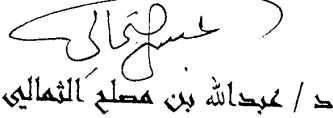 د / عبدالله بن مصلح الثمالي